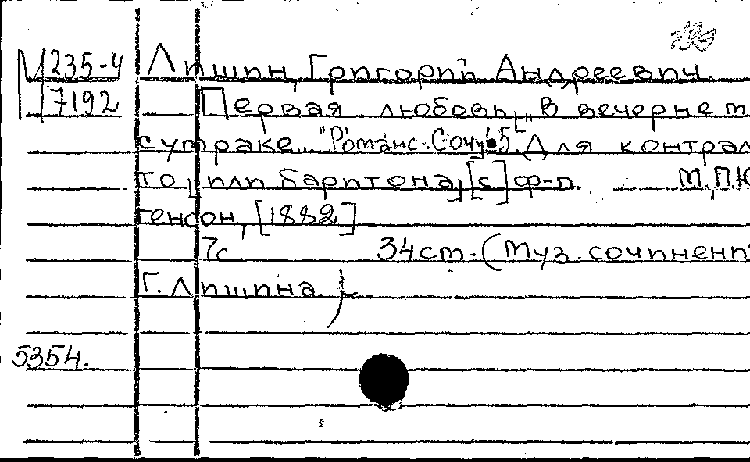 М 235-4 Лишин, Григорий Андреевич.
7192 Первая любовь. "В вечернем
сутраке... "Романс. Соч. 5. Для контрал
то [или баритона] [с] ф-п. М. П. Юр
генсон, [1882]
7с 34см. (Муз. сочинени
Г. Лишина.)
5354.